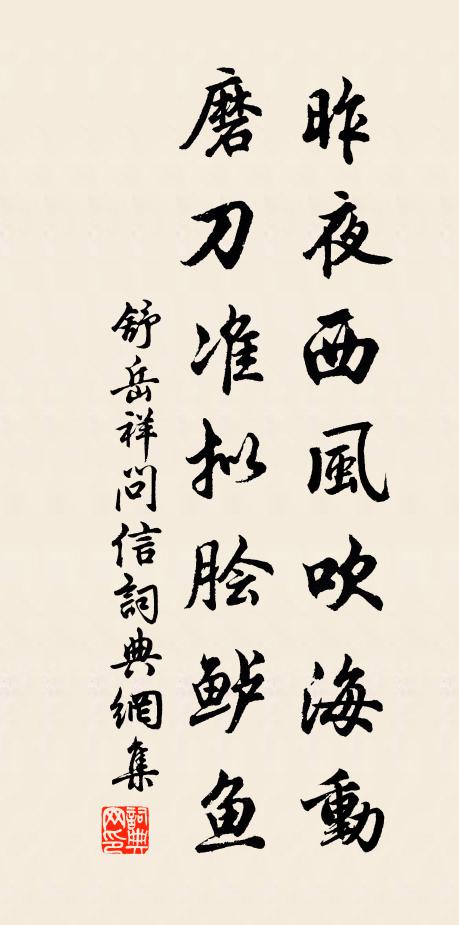 昨夜西風吹海動
磨刀准拟脍鲈鱼
舒岳祥問信詞典網集
詞典網印